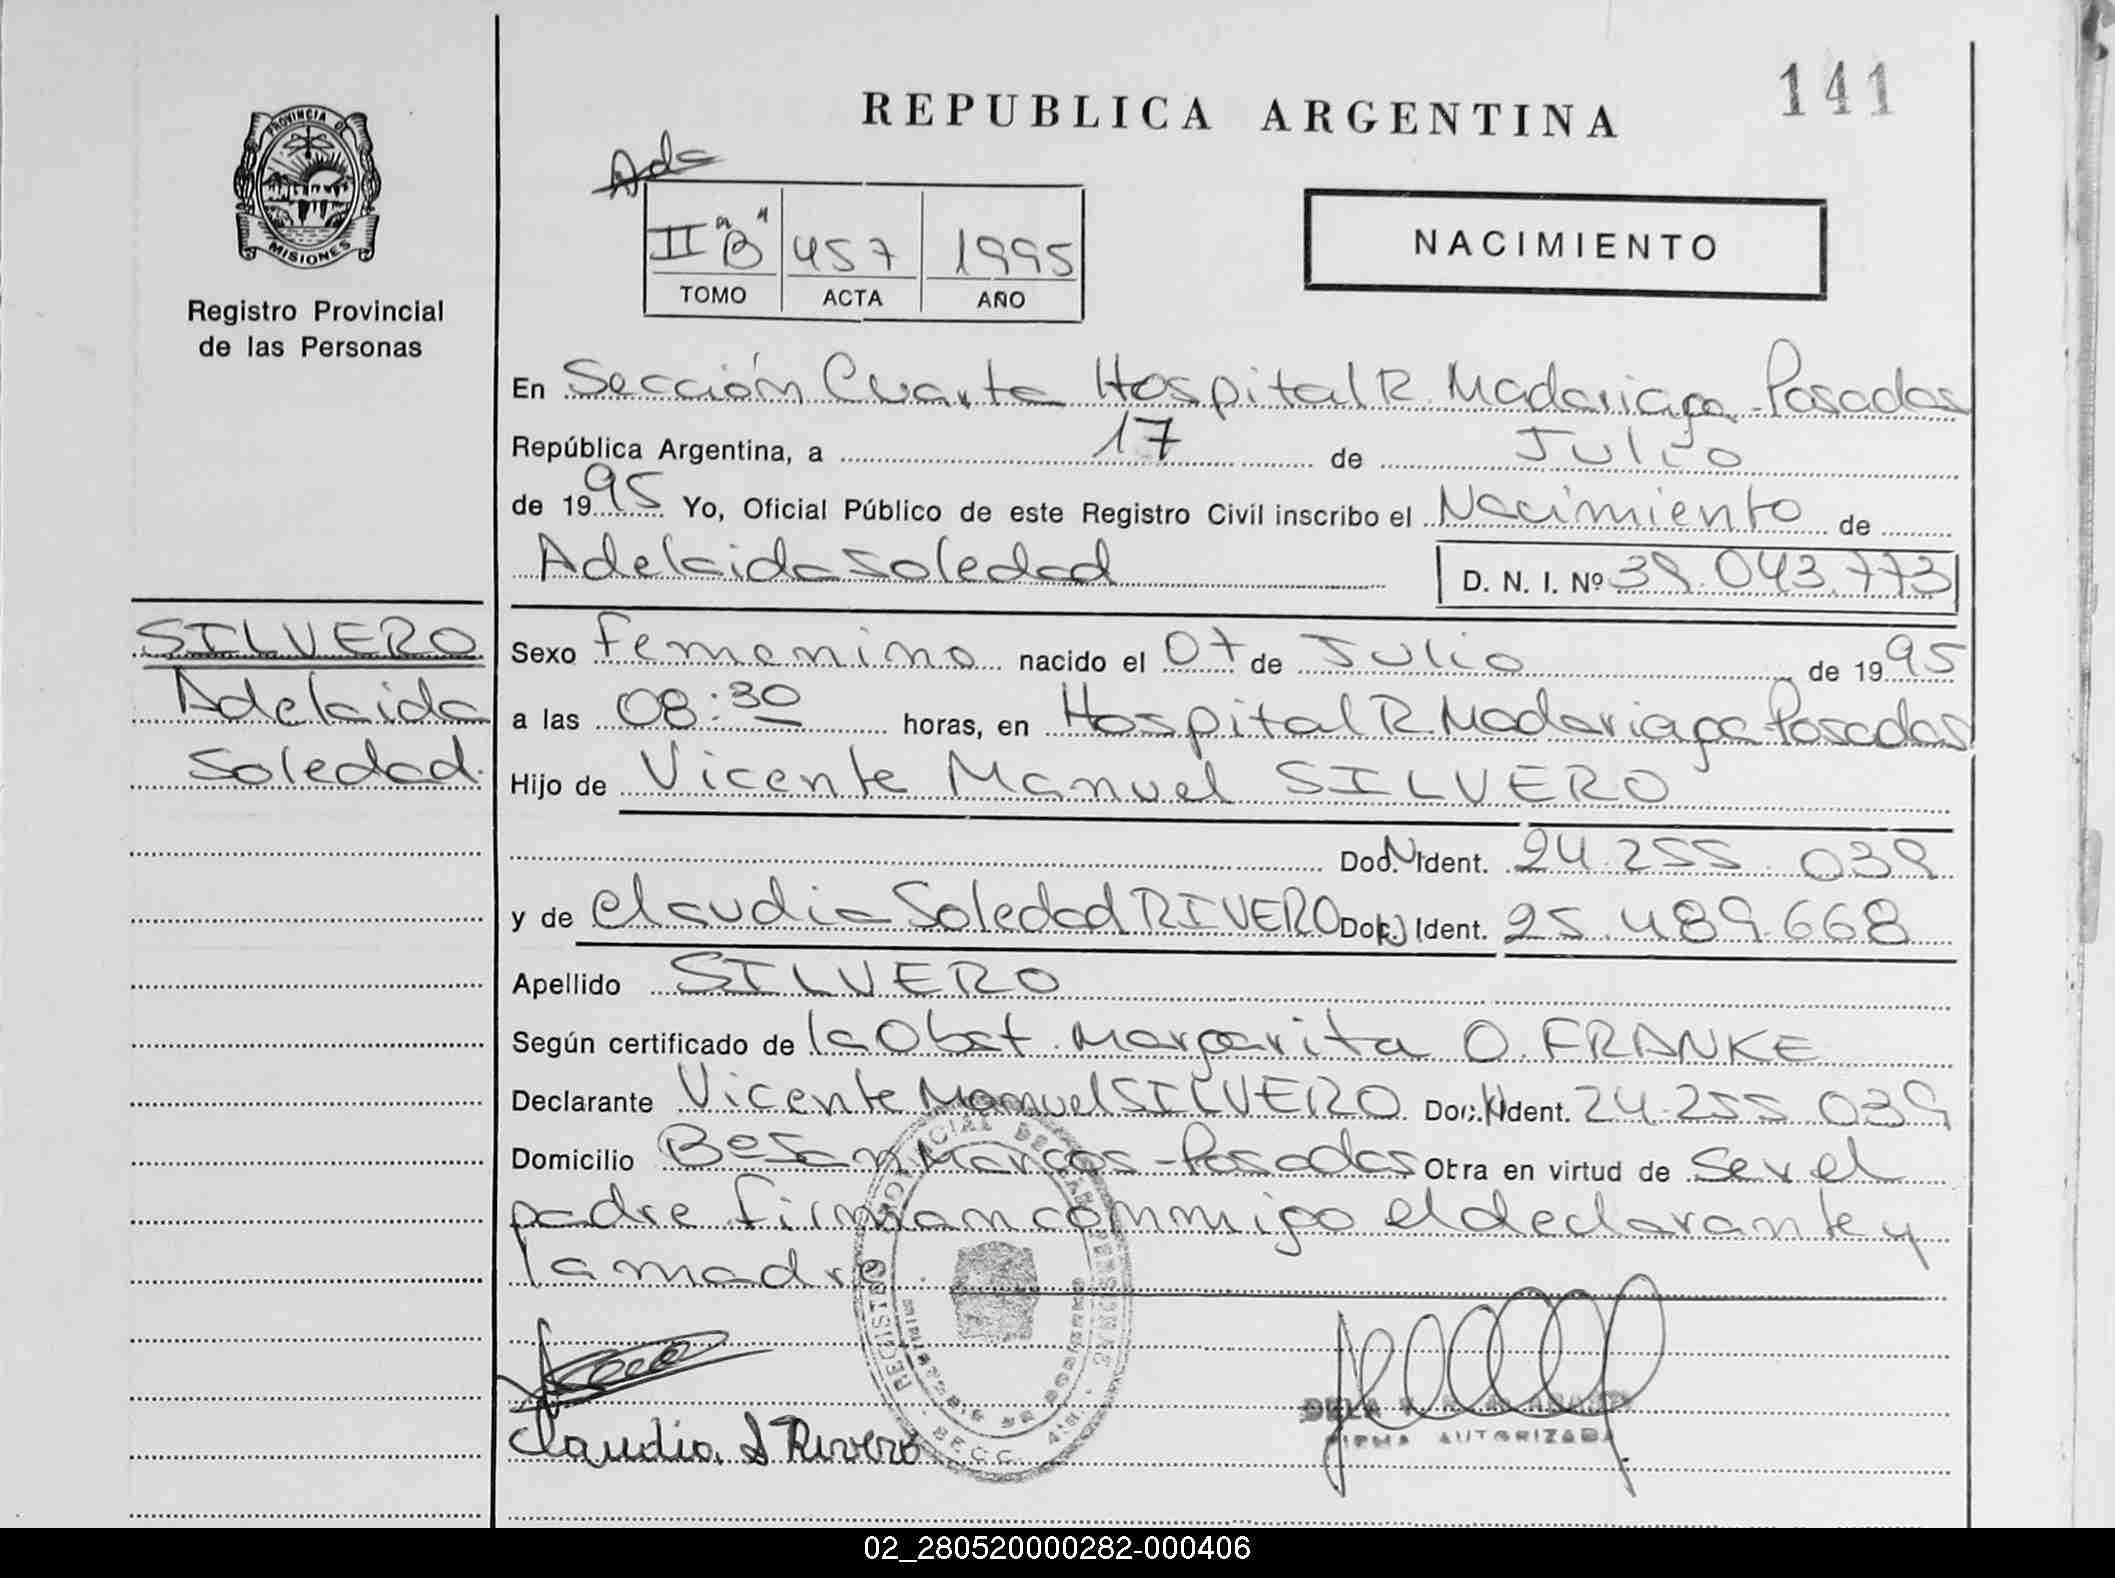 141
REPUBLICA ARGENTINA
PROVINCIA DE
MISIONES
Registro Provincial
de las Personas
Ads
II "B" 457 1995
TOMO ACTA AÑO
NACIMIENTO
En Sección Cuarta Hospital R. Madariaga - Posadas
República Argentina, a 17 de Julio
de 1995 Yo, Oficial Público de este Registro Civil inscribo el Nacimiento de
Adelaida Soledad D. N. I. Nº 39.043.773
SILVERO
Adelaida
Soledad.
Sexo femenino nacido el 07 de Julio de 1995
a las 08:30 horas, en Hospital R. Madariaga Posadas
Hijo de Vicente Manuel SILVERO
Doc. N Ident. 24.255.039
y de Claudia Soledad RIVERO Doc. Ident. 25.489.668
Apellido SILVERO
Según certificado de la Obst. Margarita O. FRANKE
Declarante Vicente Manuel SILVERO Doc. N Ident. 24.255.039
Domicilio Bº San Marcos - Posadas Obra en virtud de ser el
padre firman conmigo el declarante y
la madre.
REGISTRO PROVINCIAL DE LAS PERSONAS
SECC. 4
Claudia S Rivero
FIRMA AUTORIZADA
02_280520000282-000406